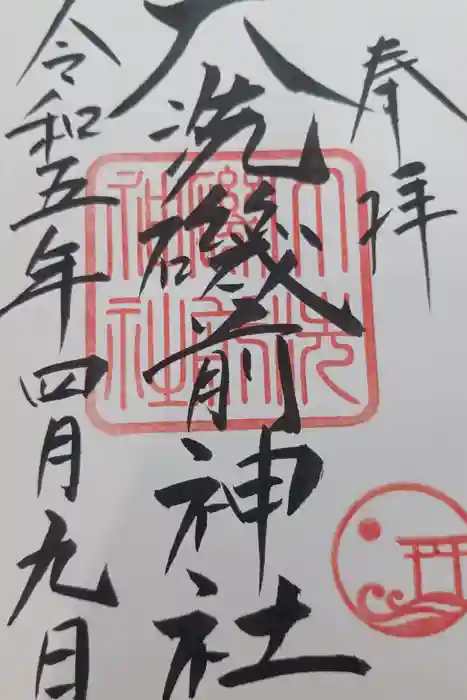 奉拝
大洗磯前神社
令和五年四月九日
大洗
磯前
神社